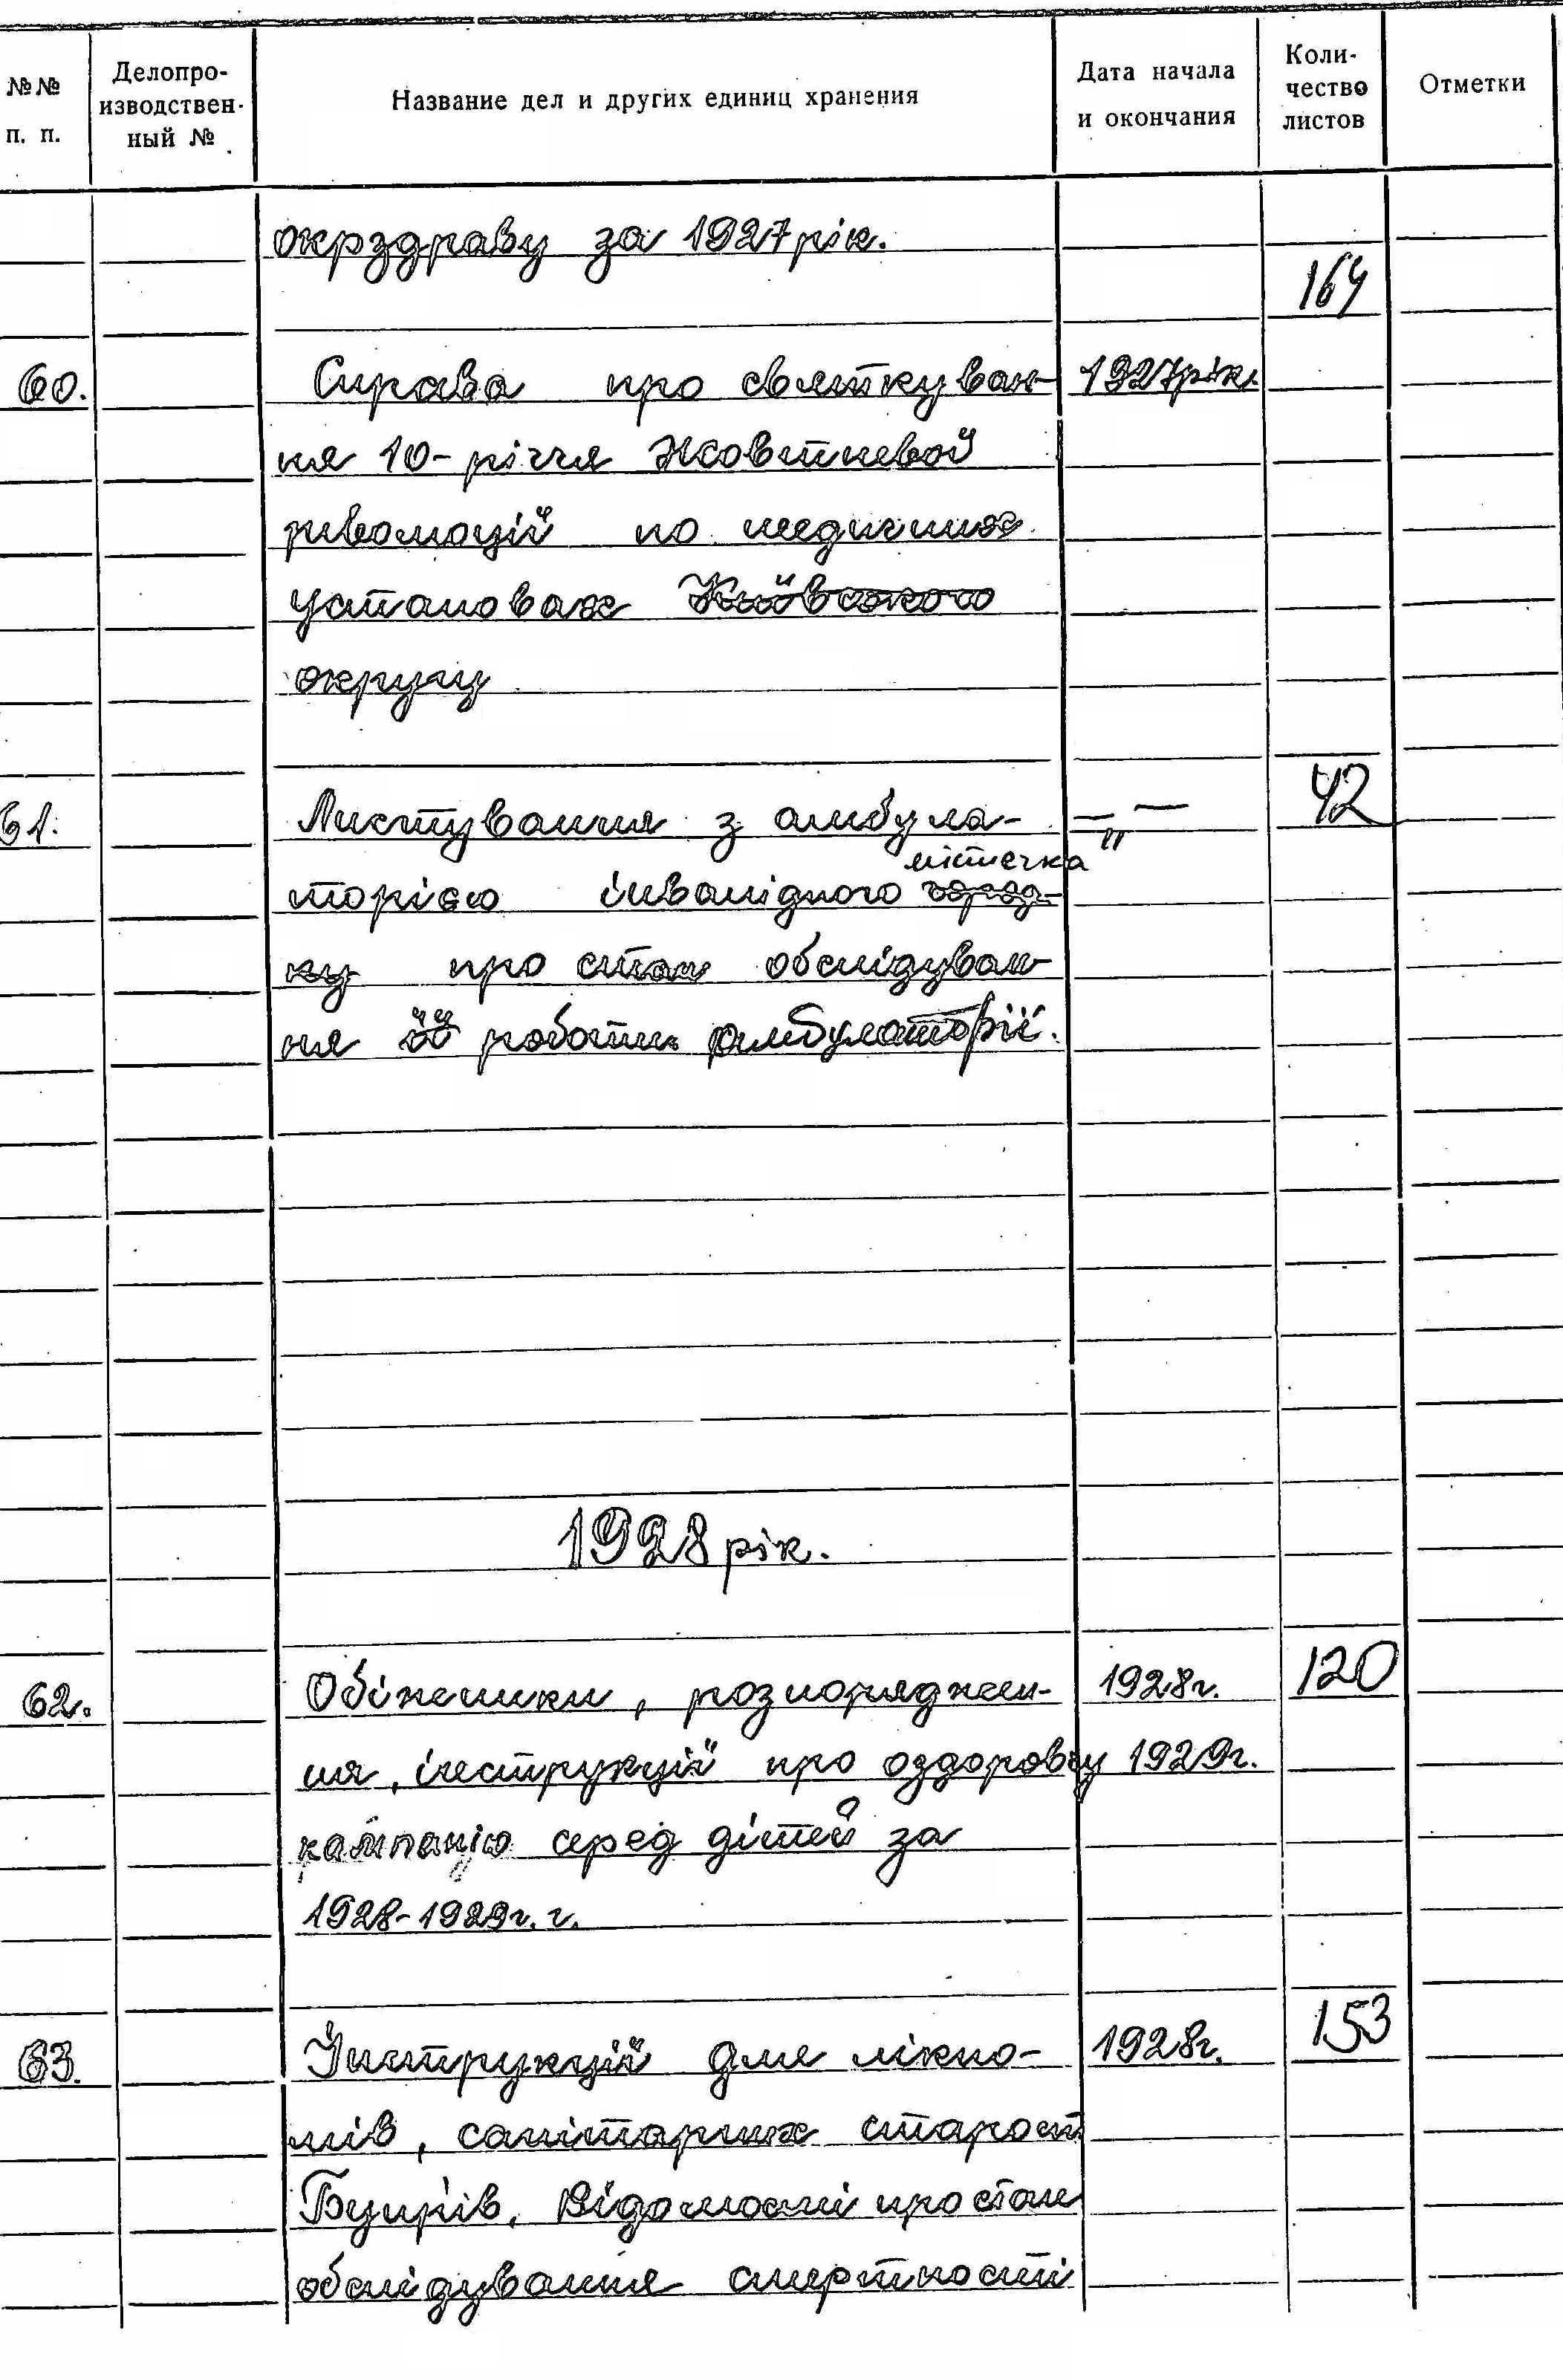 №№ п. п. Делопро- изводствен- ный № Название дел и других единиц хранения Дата начала и окончания Коли- чество листов Отметки
окрздраву за 1927 рік.
164
60. Справа про святкуван- 1927 рік.
ня 10-річчя Жовтневой
революції по медичних
установах Київського
округу
42
61. Листування з амбула- — " —
містечка
торією інвалідного город-
ку про стан обслідуван
ня її роботи амбулаторії.
1928 рік.
62. Обіжники, розпоряджен- 1928г. 120
ня, інструкції про оздоровчу 1929г.
кампанію серед дітей за
1928-1929г.г.
63. Інструкції для лікпо- 1928г. 153
мів, санітарних старост
Бупрів. Відомості про стан
обслідування смертності